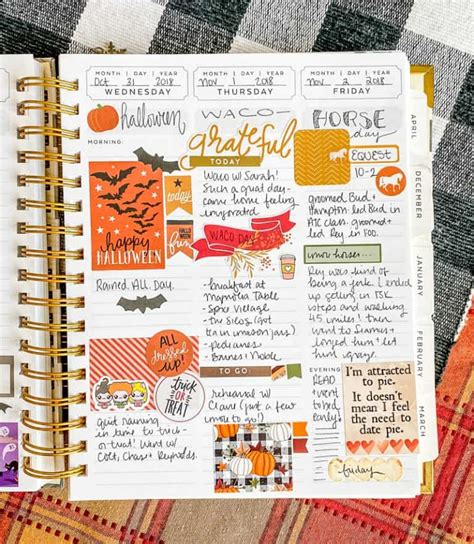 MONTH | DAY | YEAR
Oct 31 2018
WEDNESDAY
MONTH | DAY | YEAR
Nov 1 2018
THURSDAY
MONTH | DAY | YEAR
Nov 2 2018
FRIDAY
halloween
MORNING:
happy
HALLOWEEN
HALLO
WEEN
fun
Rained All Day.
ALL
dressed
UP
TRICK
OR
TREAT
Quit raining
in time to trick-
or-treat! Went w/
Colt, Chase & Reynolds.
WACO
grateful
TODAY
Waco w/ Sarah!
Such a good day-
came home feeling
WACO DAY
-breakfast at
Magnolia Table
- Spice Village
- The Silos (got
tea in mason jars)
- pedicures
- Barnes & Noble
TO GO
rehearsal w/
Claire (just a few
more to go!)
HORSE
day
EQUEST
10-2
groomed Bud &
Hampton, led Bud in
ATC class, groomed &
led Rey in Foo.
more horses...
Rey was kind of
being a jerk. I ended
up selling in 15K
steps and walking
45 miles! Then
went to Seames &
longed him, got
him
EVENING
READ
& went
to bed
early!
I'm attracted
to pie.
It doesn't
mean I feel
the need to
date pie.
friday
APRIL
DECEMBER
JANUARY
FEBRUARY
MARCH